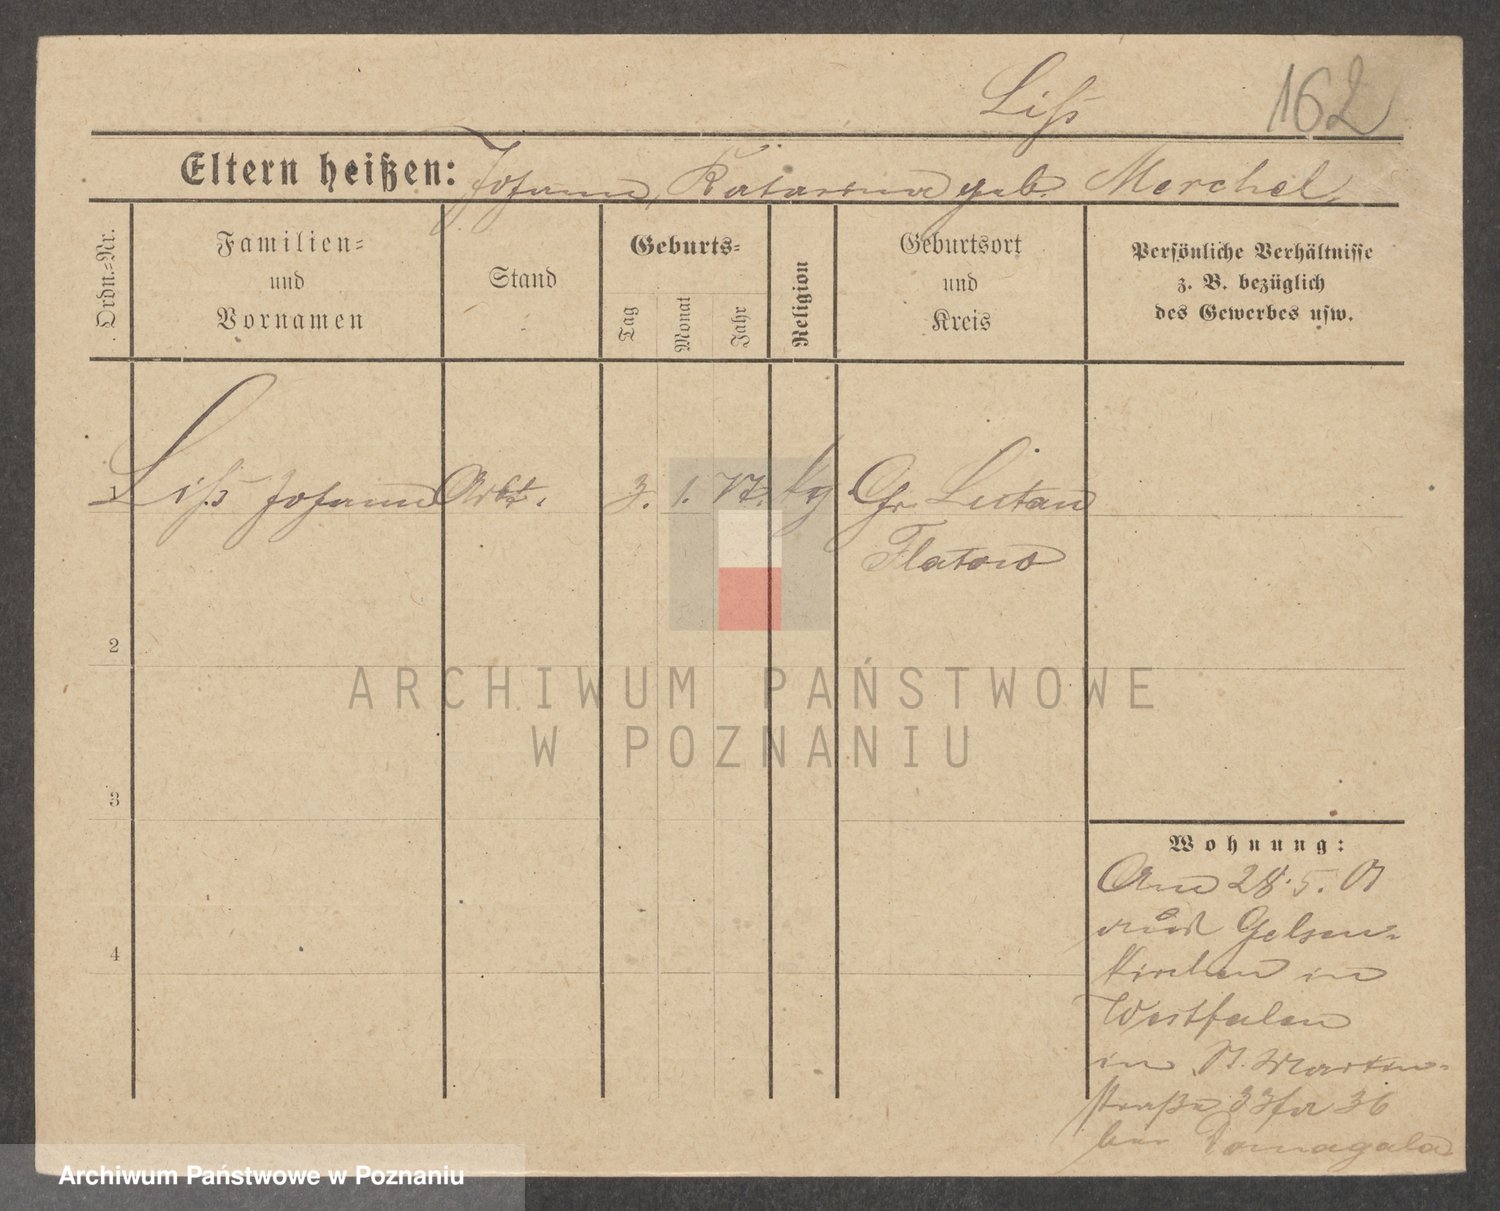 Liss
162
Eltern heißen: Johann, Katarina geb. Merchel
Ordn.-Nr.
Familien-
und
Vornamen
Stand
Geburts-
Tag
Monat
Jahr
Religion
Geburtsort
und
Kreis
Persönliche Verhältnisse
z. B. bezüglich
des Gewerbes usw.
1 Liss Johann Arbt. 3. 1. 77. kg Gr. Lutau
Flatow
2
3
4
Wohnung:
Am 28.5.01
aus Gelsen-
kirchen in
Westfalen
in St. Martin-
straße 33 fr 36
bei Domagala
ARCHIWUM PAŃSTWOWE
W POZNANIU
Archiwum Państwowe w Poznaniu